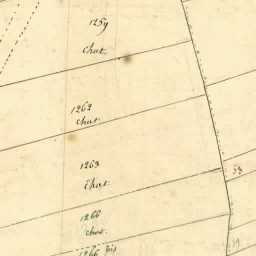 1259
chat.
1262
chat.
1263
chat.
53
1266
chat.
1266 bis